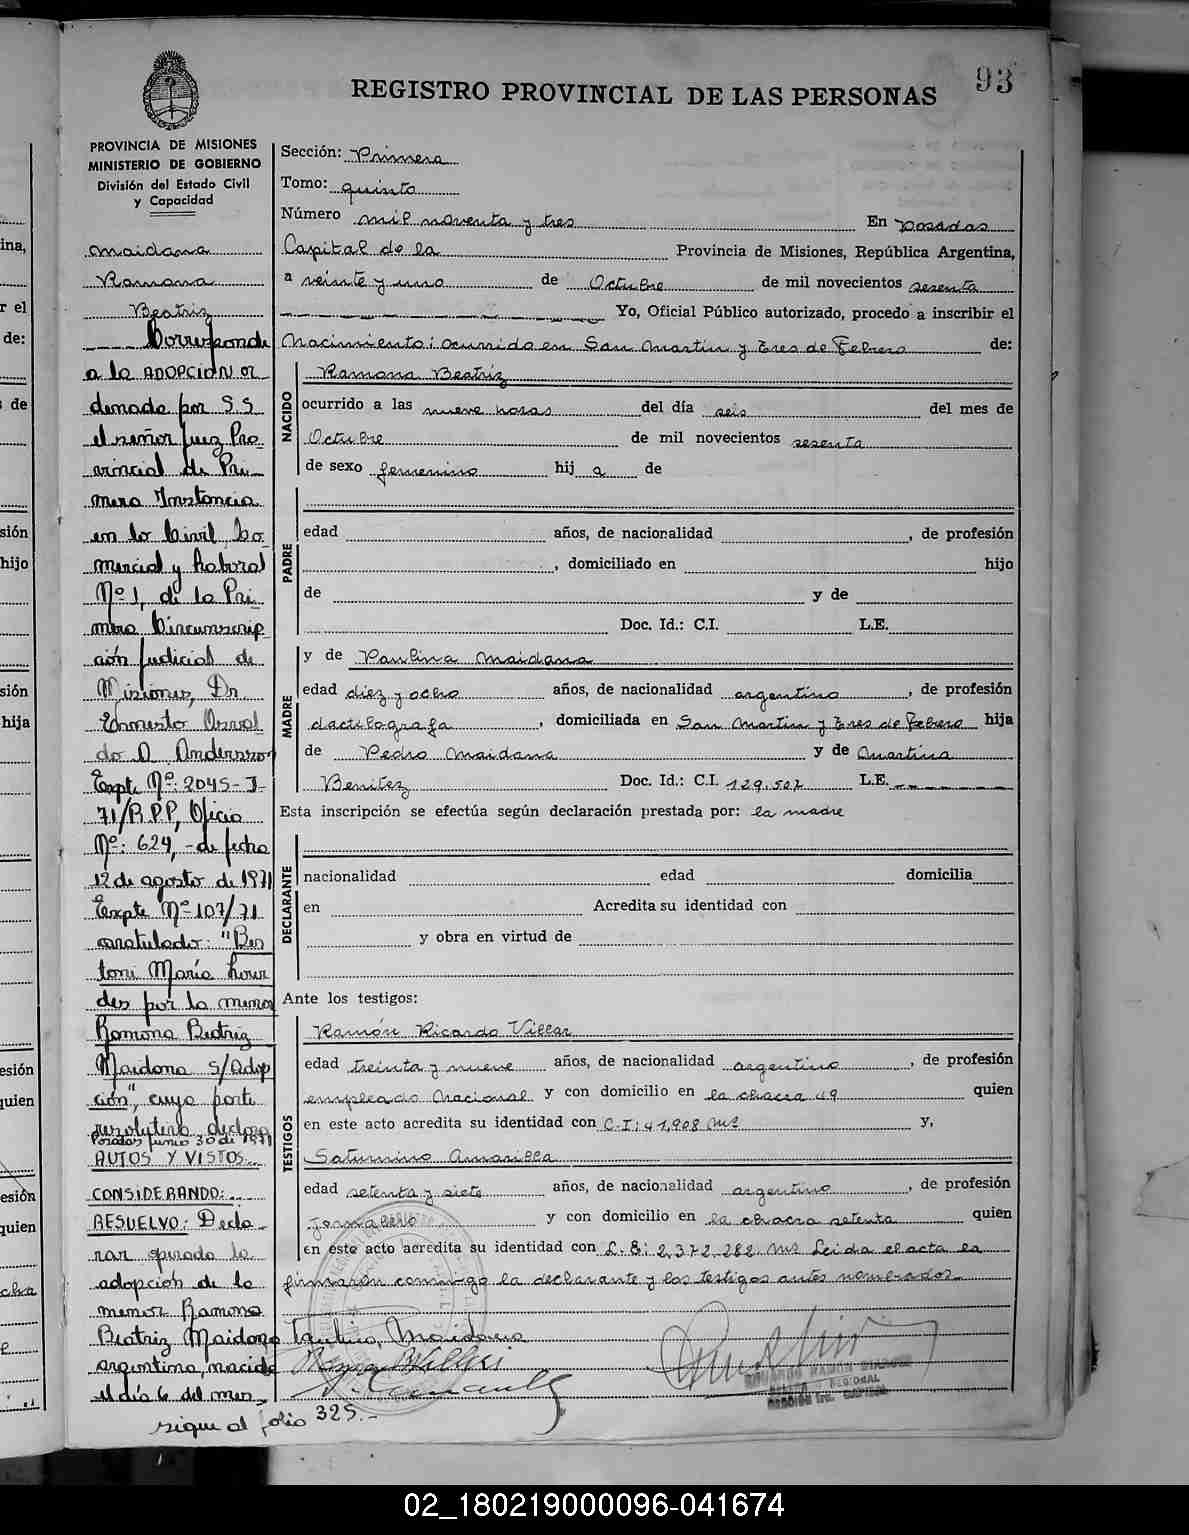 93
REGISTRO PROVINCIAL DE LAS PERSONAS
PROVINCIA DE MISIONES
MINISTERIO DE GOBIERNO
División del Estado Civil
y Capacidad
Maidana
Ramona
Beatriz
Corresponde
a la ADOPCION or
denada por S.S.
el señor Juez Pro
vincial de Pri-
mera Instancia
en lo Civil, Co-
mercial y Laboral
Nº 1, de la Pri-
mera Circunscrip
ción Judicial de
Misiones, Dr.
Ernesto Osval
do D. Andersson
Expte Nº: 2045-J-
71/R.P.P, Oficio
Nº: 624, - de fecha
12 de agosto de 1971
Expte Nº 107/71
caratulado: "Ber
toni María Lour
des por la menor
Ramona Beatriz
Maidana S/Adop
ción", cuya parte
resolutiva declara
Posadas junio 30 de 1971
AUTOS Y VISTOS...
CONSIDERANDO:...
RESUELVO: Decla-
rar operada la
adopción de la
menor Ramona
Beatriz Maidana
argentina, nacida
el día 6 del mes-
sigue al folio 325.-
Sección: Primera
Tomo: quinto
Número mil noventa y tres En Posadas
Capital de la Provincia de Misiones, República Argentina,
a veinte y uno de Octubre de mil novecientos sesenta
Yo, Oficial Público autorizado, procedo a inscribir el
Nacimiento: ocurrido en San Martin y Tres de Febrero de:
NACIDO
Ramona Beatriz
ocurrido a las nueve horas del día seis del mes de
Octubre de mil novecientos sesenta
de sexo femenino hij a de
PADRE
edad años, de nacionalidad , de profesión
, domiciliado en hijo
de y de
Doc. Id.: C.I. L.E.
MADRE
y de Paulina Maidana
edad diez y ocho años, de nacionalidad argentina , de profesión
dactilografa , domiciliada en San Martin y Tres de Febrero hija
de Pedro Maidana y de Martina
Benitez Doc. Id.: C.I. 129.507 L.E.
Esta inscripción se efectúa según declaración prestada por: la madre
DECLARANTE
nacionalidad edad domicilia
en Acredita su identidad con
y obra en virtud de
Ante los testigos:
TESTIGOS
Ramón Ricardo Villar
edad treinta y nueve años, de nacionalidad argentino , de profesión
empleado Nacional y con domicilio en la chacra 49 quien
en este acto acredita su identidad con C.I: 41,908 Mis y,
Saturnino Amarilla
edad setenta y siete años, de nacionalidad argentino , de profesión
jornalero y con domicilio en la chacra setenta quien
en este acto acredita su identidad con L.E: 2,372,282. Mis Leida el acta la
firmaron conmigo la declarante y los testigos antes nombrados
Paulina Maidana
02_180219000096-041674